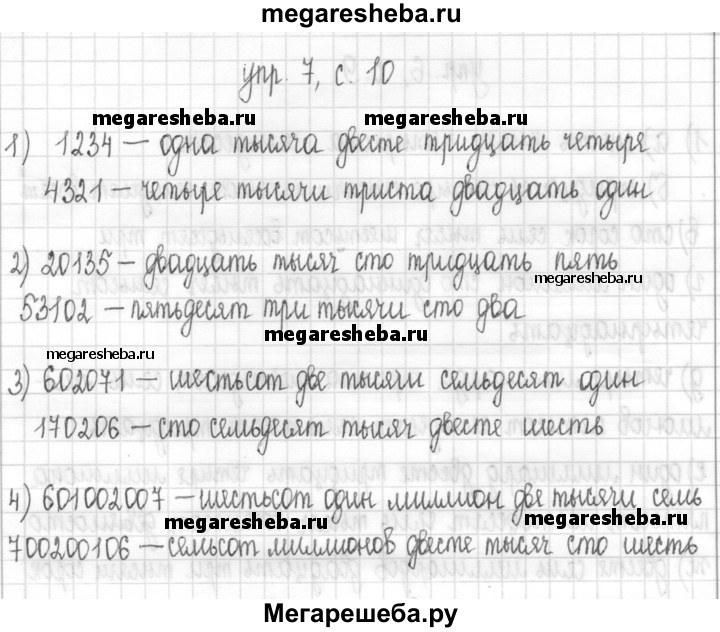 megaresheba.ru
упр. 7, с. 10
megaresheba.ru megaresheba.ru
1) 1234 — одна тысяча двести тридцать четыре
4321 — четыре тысячи триста двадцать один
2) 20135 — двадцать тысяч сто тридцать пять
megaresheba.ru
53102 — пятьдесят три тысячи сто два
megaresheba.ru
megaresheba.ru
3) 602071 — шестьсот две тысячи семьдесят один
170206 — сто семьдесят тысяч двести шесть
4) 601002007 — шестьсот один миллион две тысячи семь
megaresheba.ru megaresheba.ru
700200106 — семьсот миллионов двести тысяч сто шесть
Мегарешеба.ру